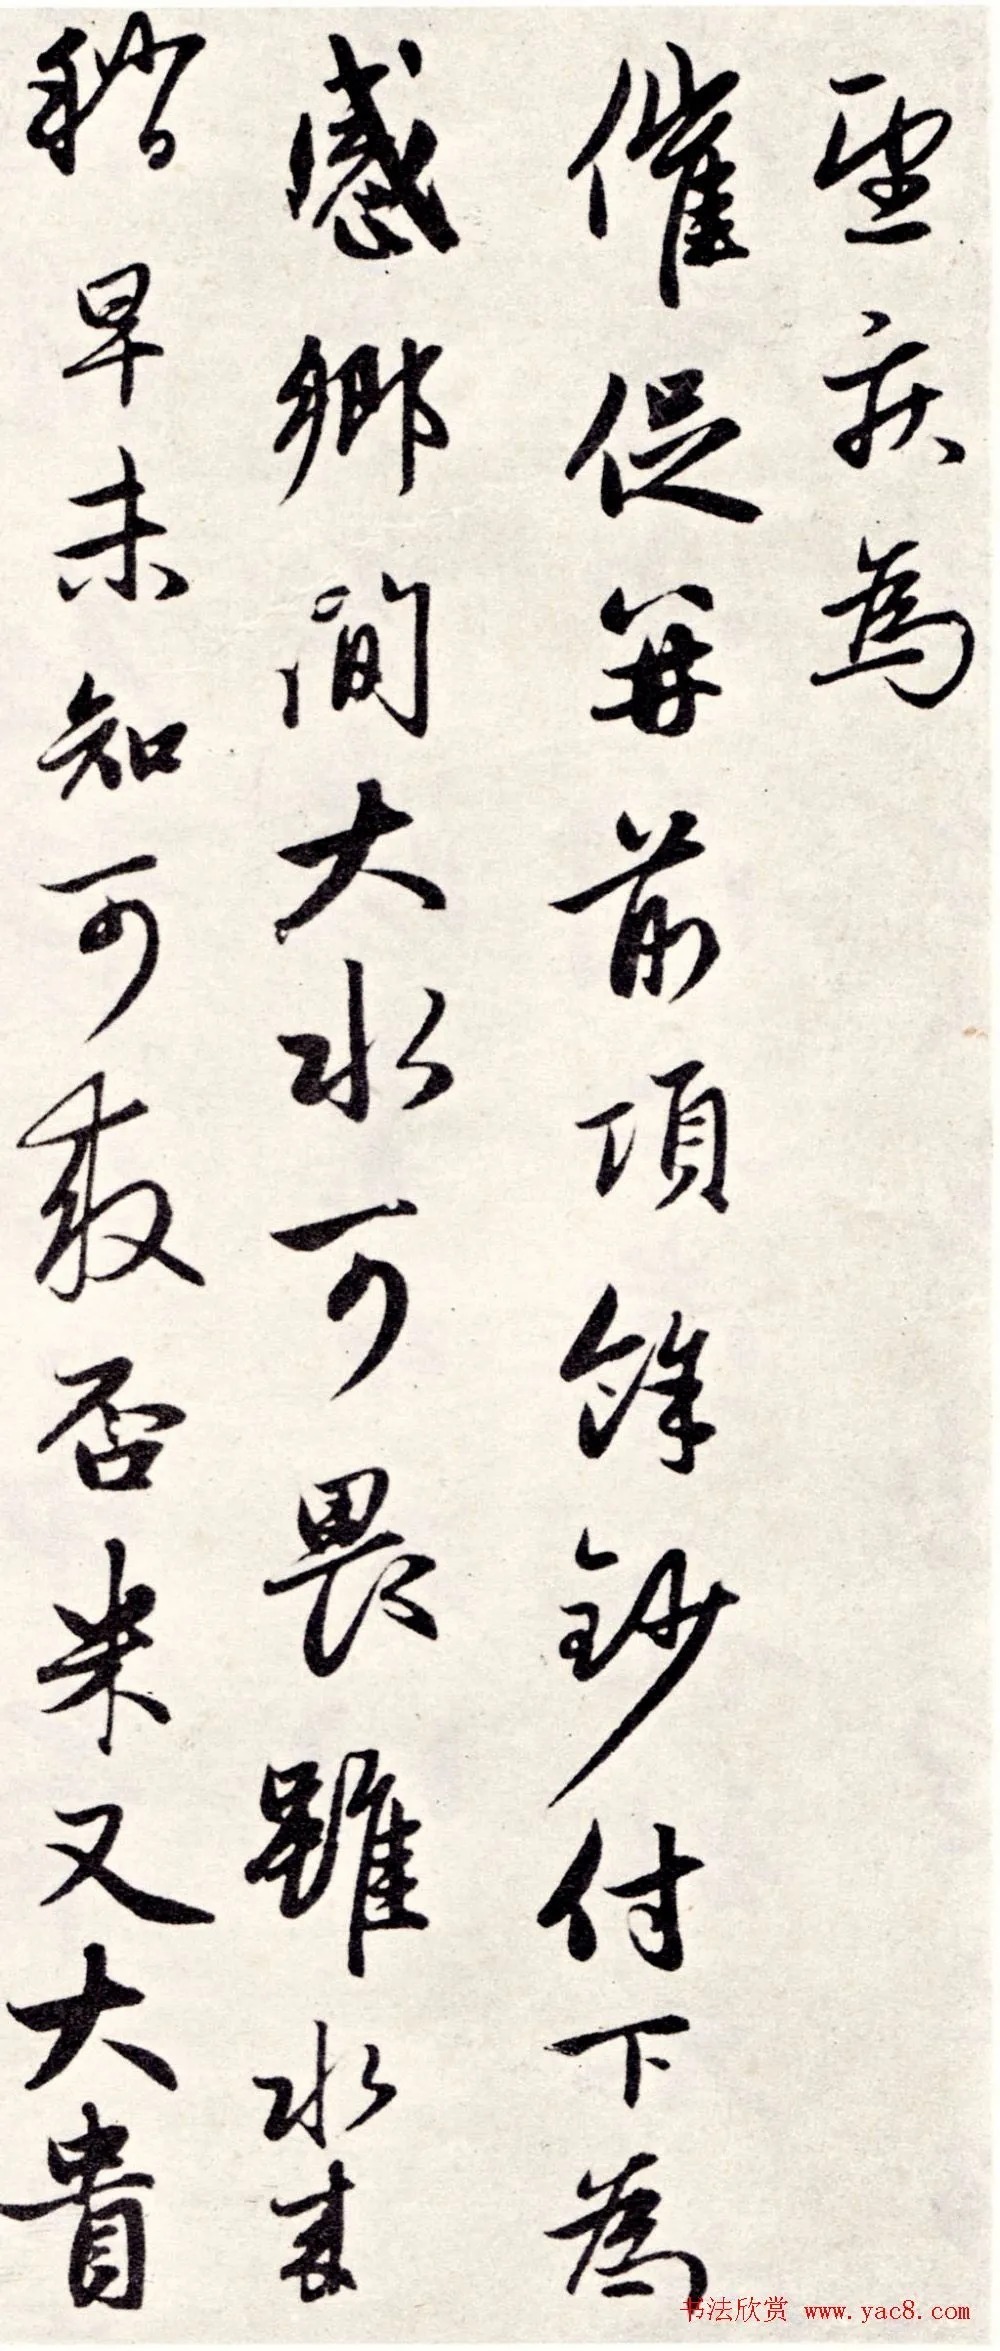 聖裁為
催促并前項餘鈔付下為
感鄉間大水可畏雖水來
稍早未知可救否米又大貴
书法欣赏 www.yac8.com